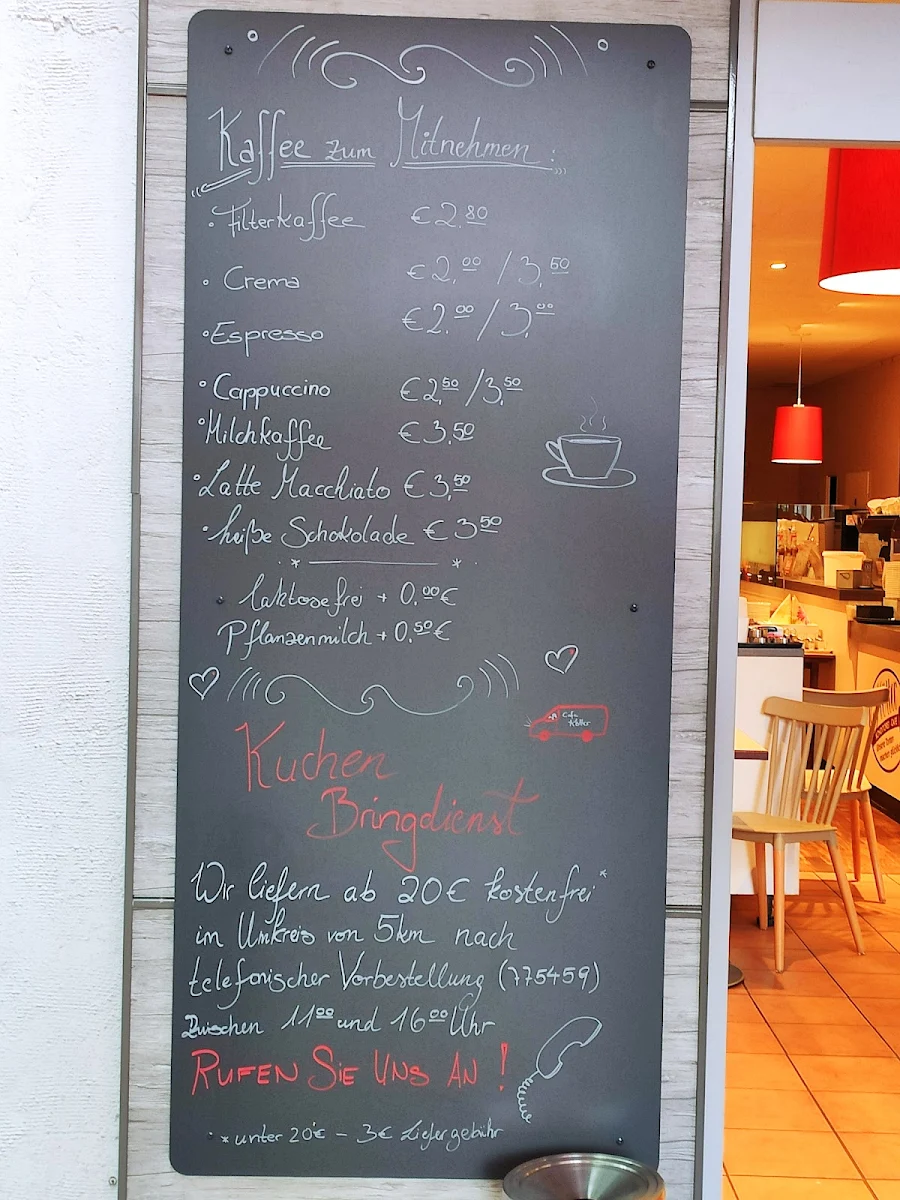 Kaffee zum Mitnehmen:
• Filterkaffee €2,80
• Crema €2,00 / 3,50
• Espresso €2,00 / 3,00
• Cappuccino €2,50 / 3,50
• Milchkaffee €3,50
• Latte Macchiato €3,50
• heiße Schokolade €3,50
laktosefrei + 0,00€
Pflanzenmilch + 0,50€
Cafe
Kuchen
Bringdienst
Wir liefern ab 20€ kostenfrei*
im Umkreis von 5km nach
telefonischer Vorbestellung (775459)
Zwischen 11°° und 16°° Uhr
RUFEN SIE UNS AN!
* unter 20€ – 3€ Liefergebühr